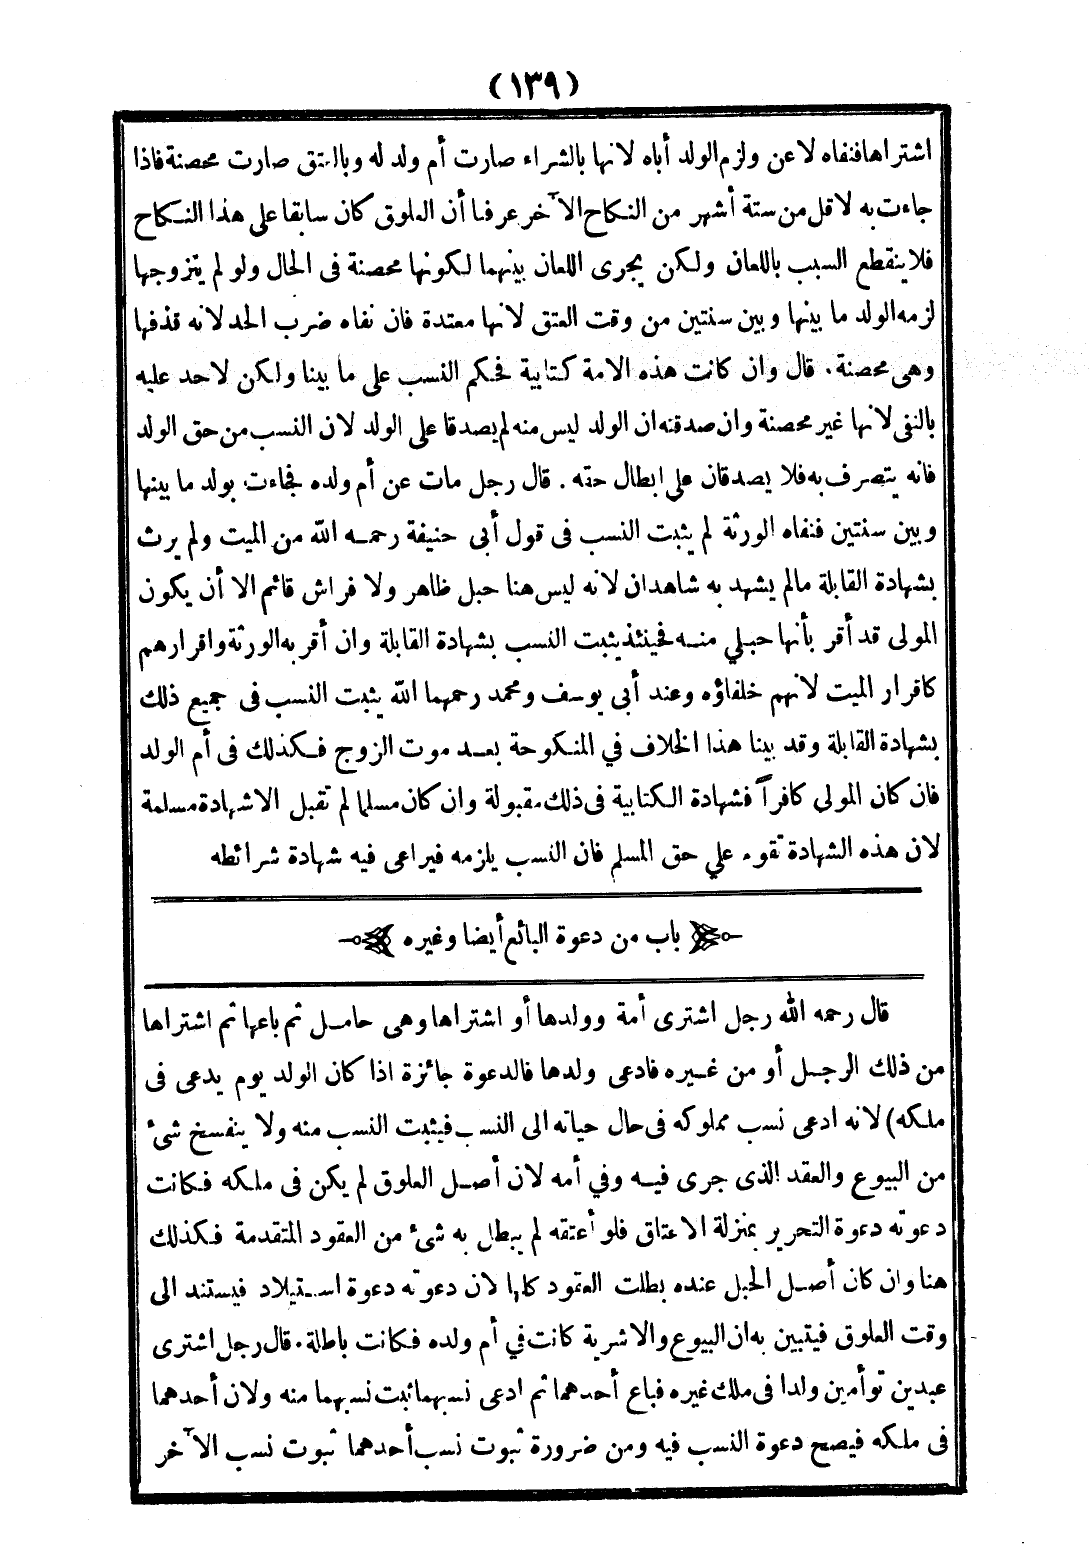 (١٣٩)
اشتراها فنفاه لاعن ولزم الولد أباه لانها بالشراء صارت أم ولد له وبالعتق صارت محصنة فاذا
جاءت به لاقل من ستة أشهر من النكاح الآخر عرفنا أن العلوق كان سابقا على هذا النكاح
فلا ينقطع السبب باللعان ولكن يجرى اللعان بينهما لكونها محصنة فى الحال ولو لم يتزوجها
لزمه الولد ما بينها وبين سنتين من وقت العتق لانها معتدة فان نفاه ضرب الحد لانه قذفها
وهى محصنة . قال وان كانت هذه الامة كتابية فحكم النسب على ما بينا ولكن لاحد عليه
بالنفى لانها غير محصنة وان صدقته ان الولد ليس منه لم يصدقا على الولد لان النسب من حق الولد
فانه يتصرف به فلا يصدقان على ابطال حقه . قال رجل مات عن أم ولده فجاءت بولد ما بينها
وبين سنتين فنفاه الورثة لم يثبت النسب فى قول أبى حنيفة رحمه الله من الميت ولم يرث
بشهادة القابلة مالم يشهد به شاهدان لانه ليس هنا حبل ظاهر ولا فراش قائم الا أن يكون
المولى قد أقر بأنها حبلي منه فحينئذ يثبت النسب بشهادة القابلة وان أقر به الورثة واقرارهم
كاقرار الميت لانهم خلفاؤه وعند أبى يوسف ومحمد رحمهما الله يثبت النسب فى جميع ذلك
بشهادة القابلة وقد بينا هذا الخلاف في المنكوحة بعد موت الزوج فكذلك فى أم الولد
فان كان المولى كافراً فشهادة الكتابية فى ذلك مقبولة وان كان مسلما لم تقبل الا شهادة مسلمة
لان هذه الشهادة تقوم علي حق المسلم فان النسب يلزمه فيراعى فيه شهادة شرائطه
باب من دعوة البائع أيضا وغيره
قال رحمه الله رجل اشترى أمة وولدها أو اشتراها وهى حامل ثم باعها ثم اشتراها
من ذلك الرجل أو من غيره فادعى ولدها فالدعوة جائزة اذا كان الولد يوم يدعى فى
ملكه) لانه ادعى نسب مملوكه فى حال حياته الى النسب فيثبت النسب منه ولا ينفسخ شئ
من البيوع والعقد الذى جرى فيه وفي أمه لان أصل العلوق لم يكن فى ملكه فكانت
دعوته دعوة التحرير بمنزلة الاعتاق فلو أعتقه لم يبطل به شئ من العقود المتقدمة فكذلك
هنا وان كان أصل الحبل عنده بطلت العقود كلها لان دعوته دعوة استيلاد فيستند الى
وقت العلوق فيتبين به ان البيوع والاشرية كانت في أم ولده فكانت باطلة . قال رجل اشترى
عبدين توأمين ولدا فى ملك غيره فباع أحدهما ثم ادعى نسبهما ثبت نسبهما منه ولان أحدهما
فى ملكه فيصح دعوة النسب فيه ومن ضرورة ثبوت نسب أحدهما ثبوت نسب الآخر